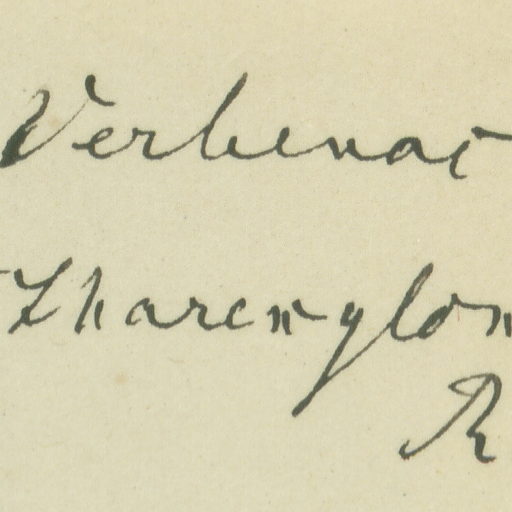 Verbenac
tharexylon
R